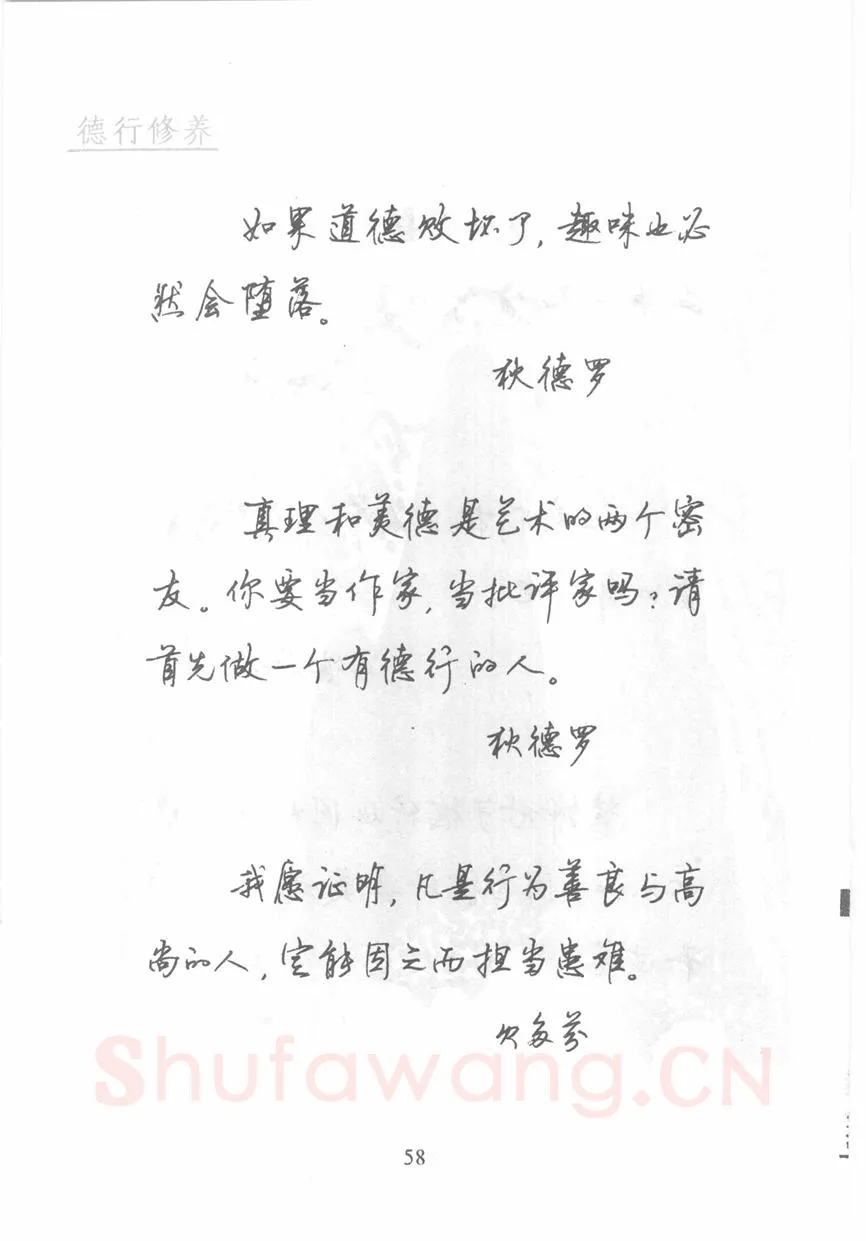 德行修养
如果道德败坏了，趣味也必
然会堕落。
狄德罗
真理和美德是艺术的两个密
友。你要当作家，当批评家吗？请
首先做一个有德行的人。
狄德罗
我愿证明，凡是行为善良与高
尚的人，定能因之而担当患难。
贝多芬
Shufawang.CN
58